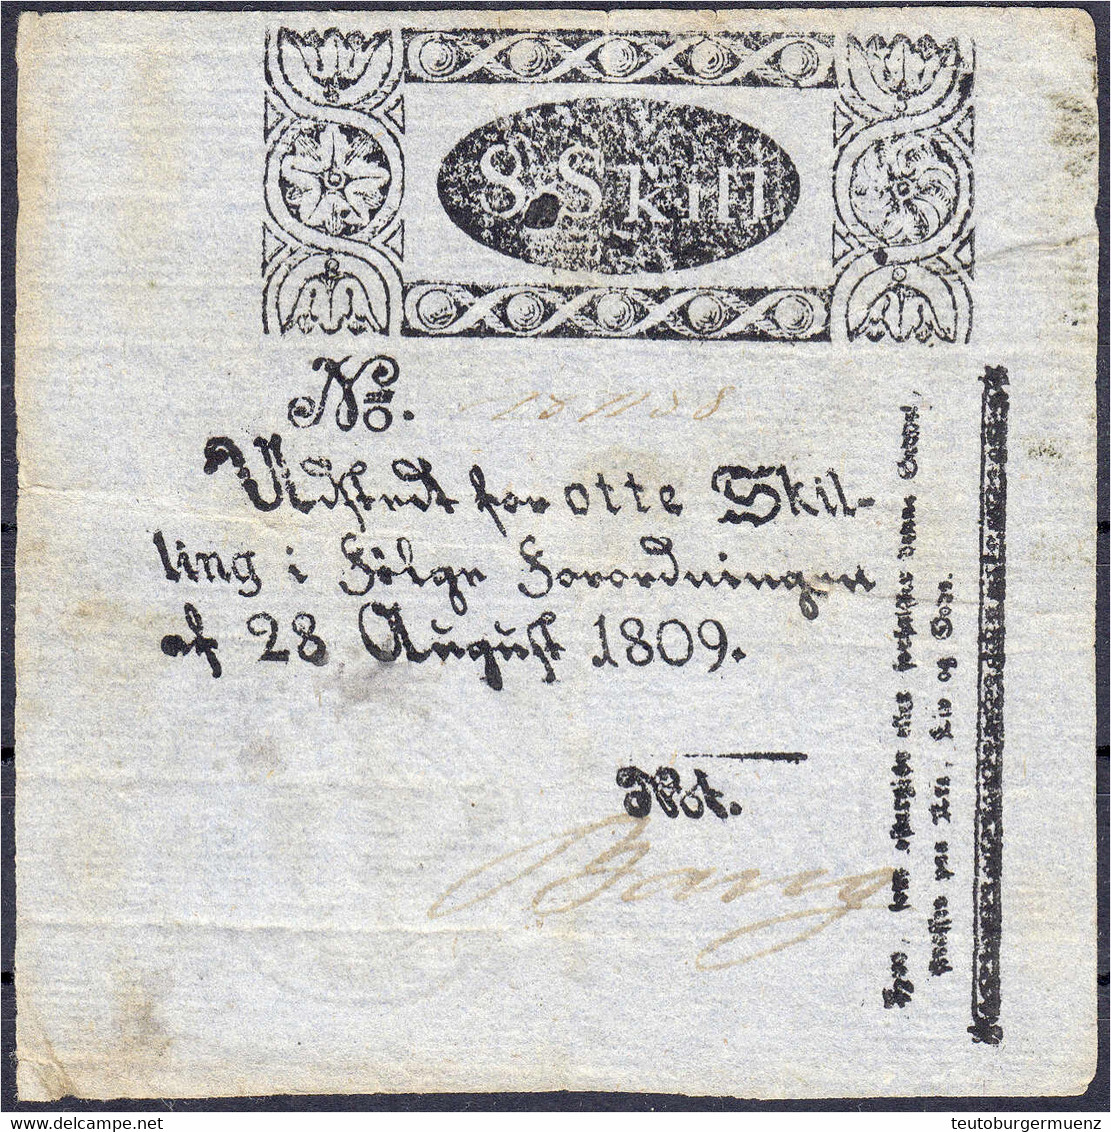 8 Skill
No.
Udstedt for otte Skil-
ling i Fölge Forordningen
af 28 August 1809.
Not.
Bang
Hver, som eftergiør eller forfalsker denne Seddel,
straffes paa Ære, Liv og Gods.
delcampe.net
teutoburgermuenz